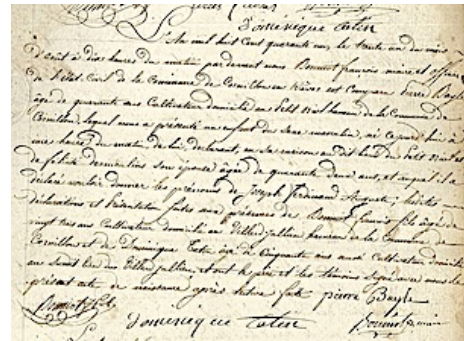 Dominique Caten
L'An mil huit cent quarante un, le trente un du mois
d'août à dix heures du matin par devant nous Bonnot françois maire et officier
de l'état civil de la Commune de Cornillon en trièves est comparu pierre Bayle
âgé de quarante ans Cultivateur domicilié au Petit hameau de la Commune de
Cornillon, lequel nous a présenté un enfant du sexe masculin, né ce jourd'hui à
une heure du matin de lui déclarant, en sa maison audit lieu du Petit
de félicité son épouse âgée de quarante deux ans, et auquel il a
déclaré vouloir donner les prénoms de Joseph ferdinand Auguste; lesdites
déclarations et présentation faites aux présences de Bonnot fils âgé de
vingt trois ans Cultivateur domicilié au Villard jullien hameau de la Commune de
Cornillon et de Dominique âgé de Cinquante ans aussi Cultivateur domicilié
au dit Villard jullien, et ont le père et les témoins signé avec nous le
présent acte de naissance après lecture faite pierre Bayle
Bonnot fils
Dominique Caten
Bonnot maire